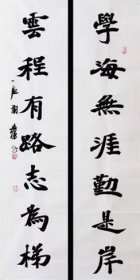 學海無涯勤是岸
雲程有路志為梯